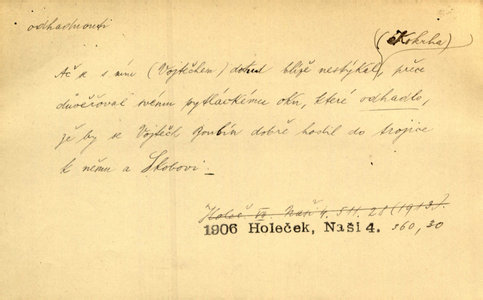 odhadnouti
(Kohrba)
Ač se s ním (Vojtěchem) dosud blíže nestýkal, přece
důvěřoval svému pytláckému oku, které odhadlo,
že by se Vojtěch Boubín dobře hostil do trojice
k němu a Skobovi.
Naši 4. 511.28 (1913).
1906 Holeček, Naši 4. 360, 30